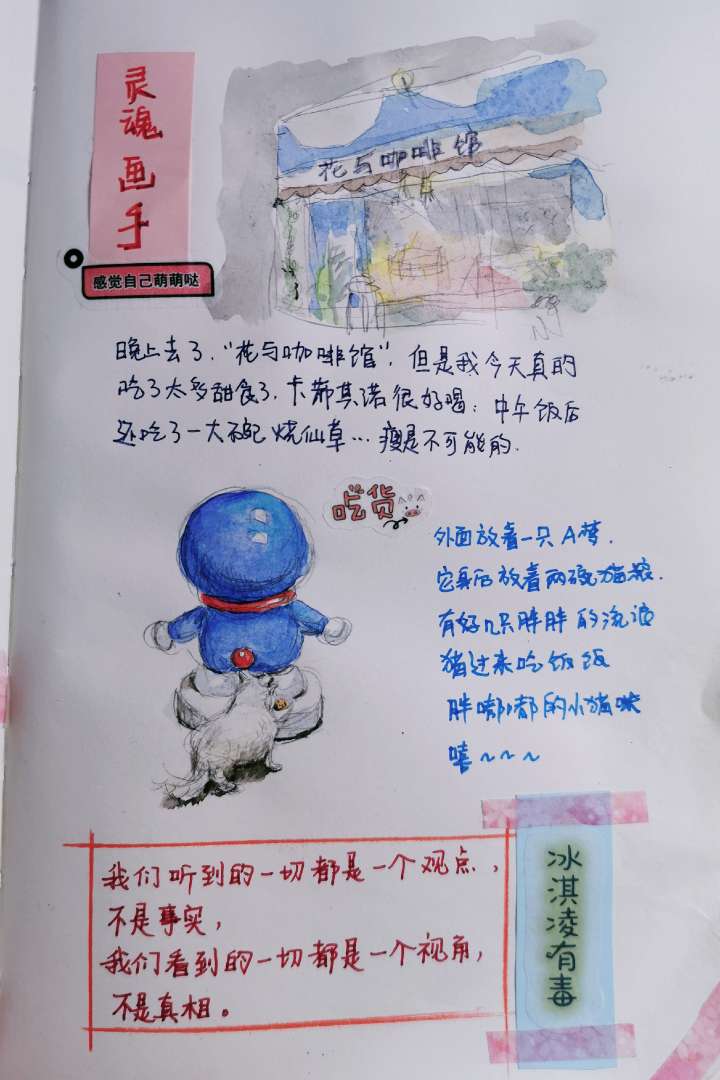 灵魂画手
感觉自己萌萌哒
花与咖啡馆
晚上去了,“花与咖啡馆”,但是我今天真的
吃了太多甜食了.卡布其诺很好喝;中午饭后
还吃了一大碗烧仙草…瘦是不可能的.
吃货
外面放着一只A梦.
它身后放着两碗猫粮.
有好几只胖胖的流浪
猫过来吃饭饭
胖嘟嘟的小猫咪
嘻~~~
我们听到的一切都是一个观点,
不是事实,
我们看到的一切都是一个视角,
不是真相。
冰淇凌有毒